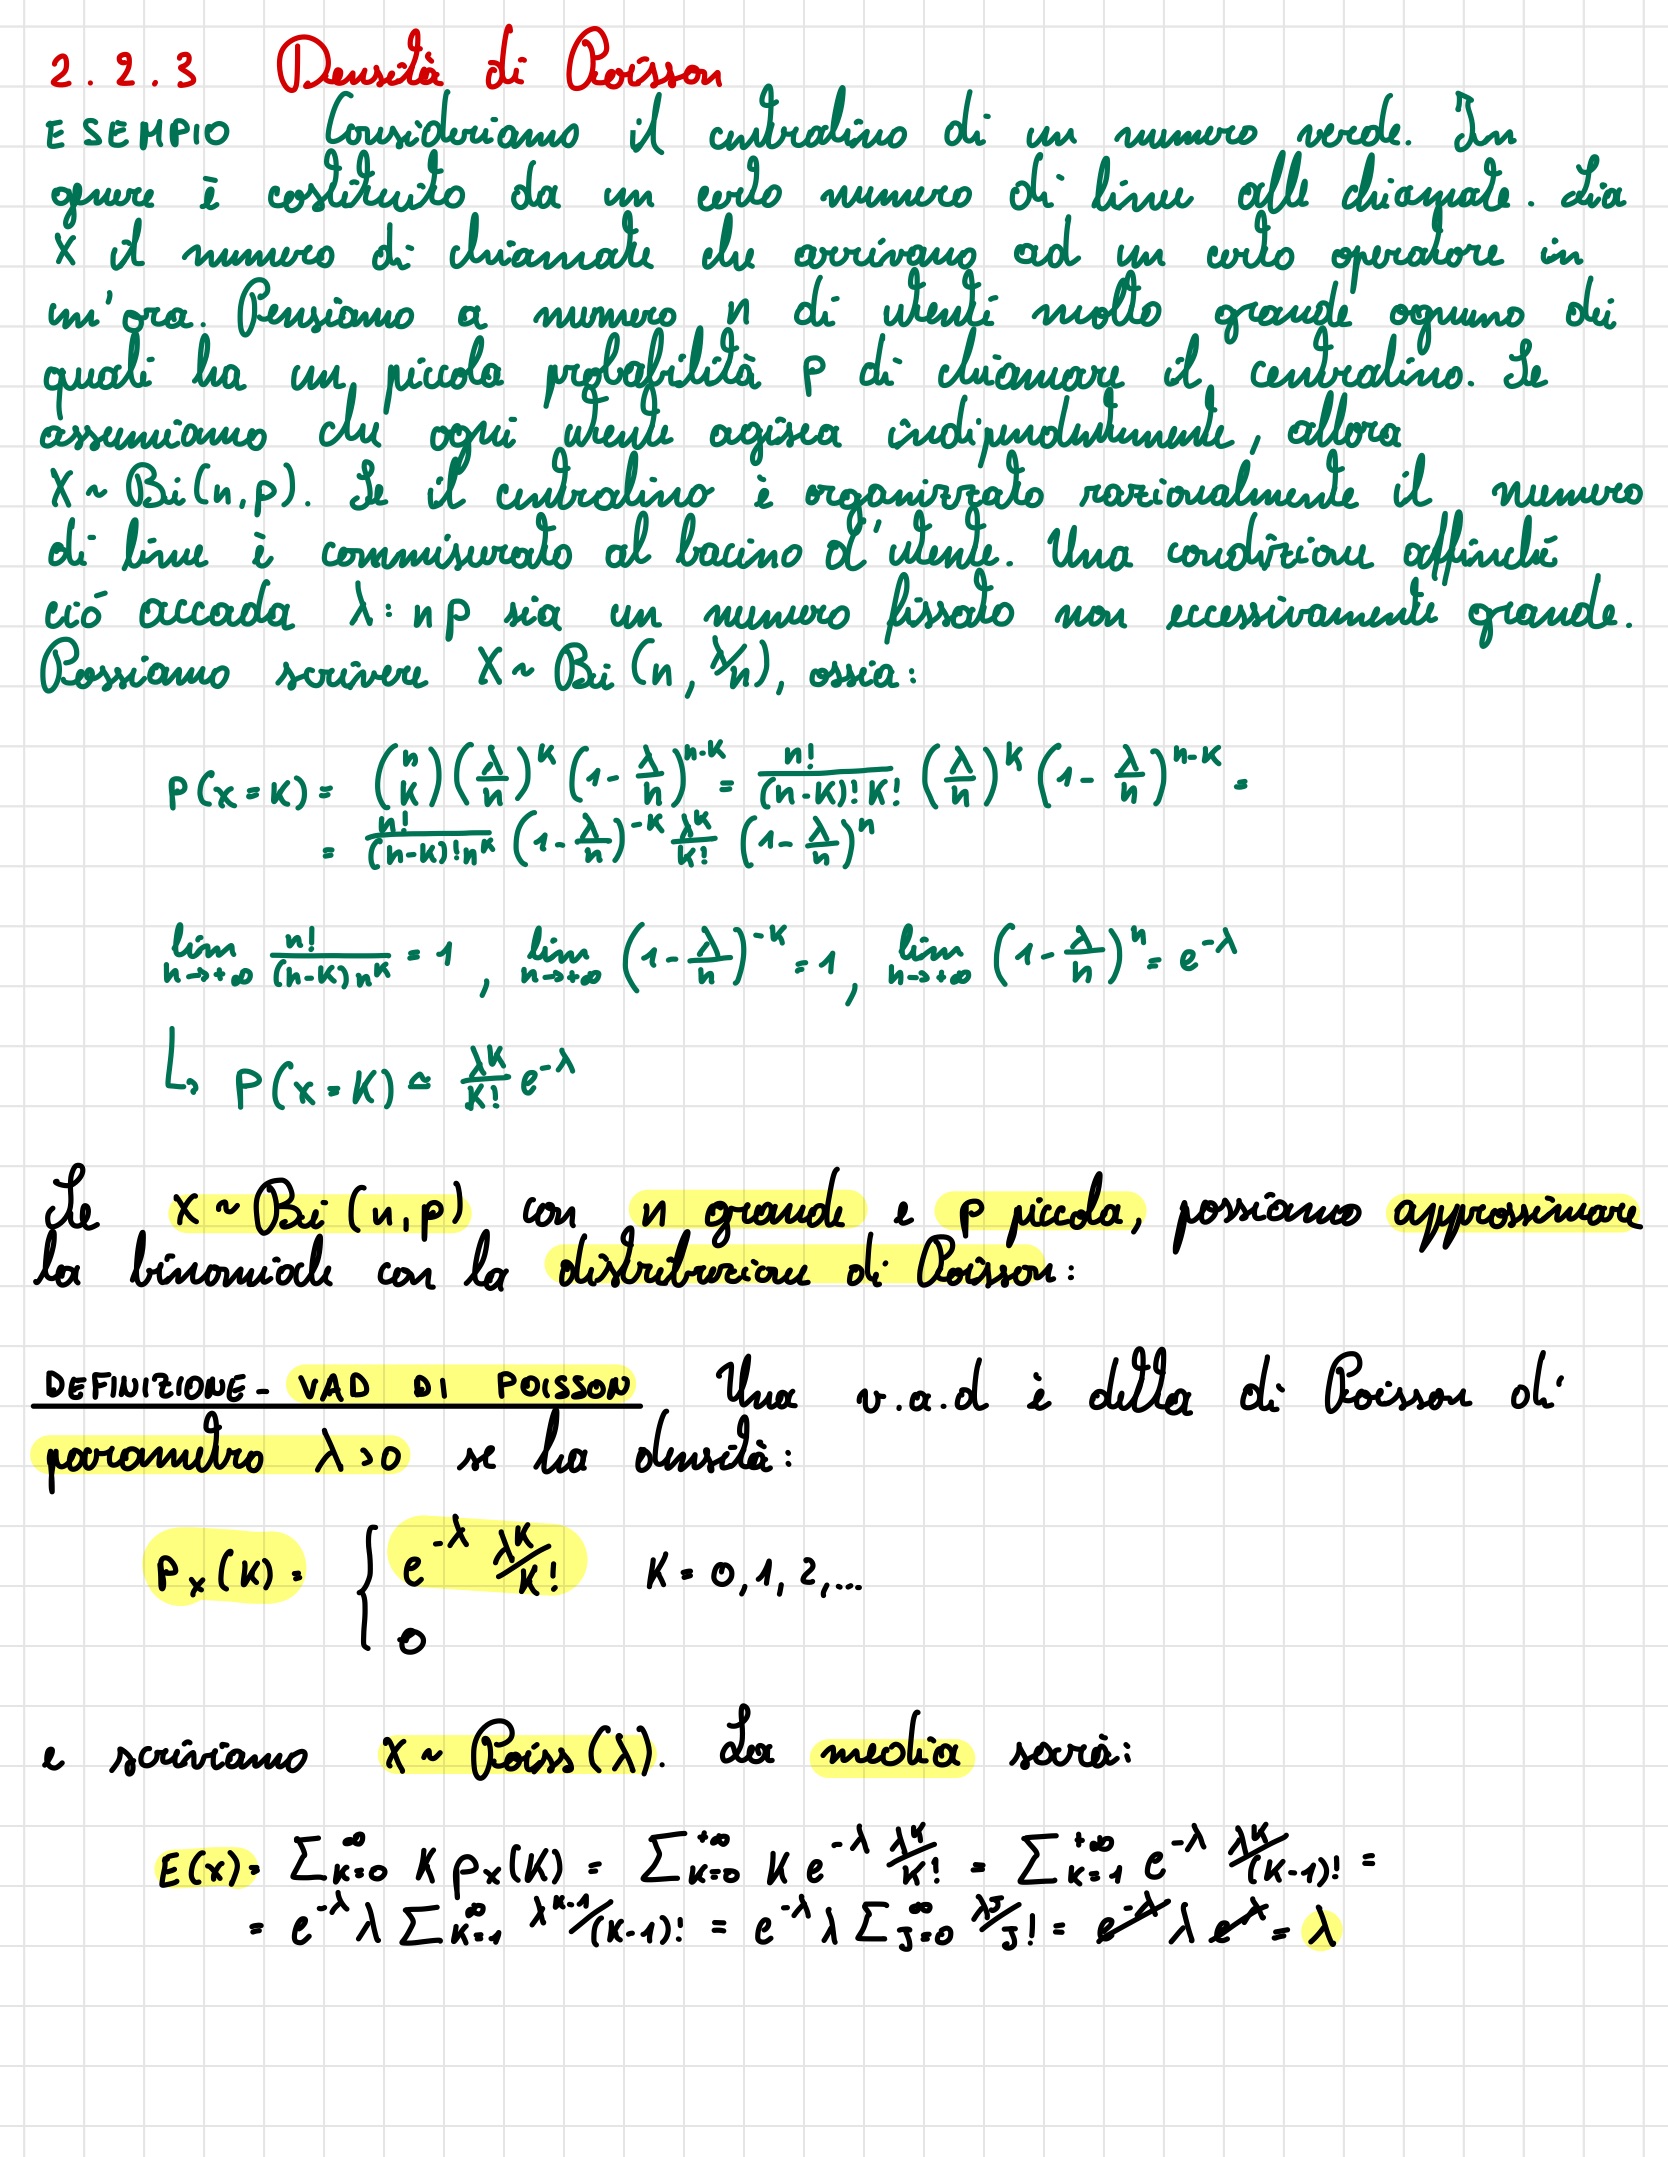 2.2.3 Densità di Poisson
ESEMPIO Consideriamo il centralino di un numero verde. In
genere è costituito da un certo numero di linee alle chiamate. Sia
X il numero di chiamate che arrivano ad un certo operatore in
un'ora. Pensiamo a numero n di utenti molto grande ognuno dei
quali ha un piccola probabilità p di chiamare il centralino. Se
assumiamo che ogni utente agisca indipendentemente, allora
X ~ Bi(n,p). Se il centralino è organizzato razionalmente il numero
di linee è commisurato al bacino d'utente. Una condizione affinché
ció accada λ:np sia un numero fissato non eccessivamente grande.
Possiamo scrivere X ~ Bi(n, λ/n), ossia:
P(x=K) = (n K) (λ/n)^K (1-λ/n)^(n-K) = n!/((n-K)!K!) (λ/n)^K (1-λ/n)^(n-K) =
= n!/((n-K)!n^K) (1-λ/n)^(-K) λ^K/K! (1-λ/n)^n
lim n→+∞ n!/((n-K)n^K) = 1 , lim n→+∞ (1-λ/n)^(-K) = 1, lim n→+∞ (1-λ/n)^n = e^(-λ)
↳ P(x=K) ≃ λ^K/K! e^(-λ)
Se X ~ Bi(n,p) con n grande e p piccola, possiamo approssimare
la binomiale con la distribuzione di Poisson:
DEFINIZIONE - VAD DI POISSON Una v.a.d è detta di Poisson di
parametro λ>0 se ha densità:
P_x(K) = { e^(-λ) λ^K/K! K=0,1,2,...
0
e scriviamo X ~ Poiss(λ). La media sarà:
E(x) = ∑_(K=0)^∞ K p_x(K) = ∑_(K=0)^(+∞) K e^(-λ) λ^K/K! = ∑_(K=1)^(+∞) e^(-λ) λ^K/(K-1)! =
= e^(-λ) λ ∑_(K=1)^∞ λ^(K-1)/(K-1)! = e^(-λ) λ ∑_(J=0)^∞ λ^J/J! = e^(-λ) λ e^λ = λ